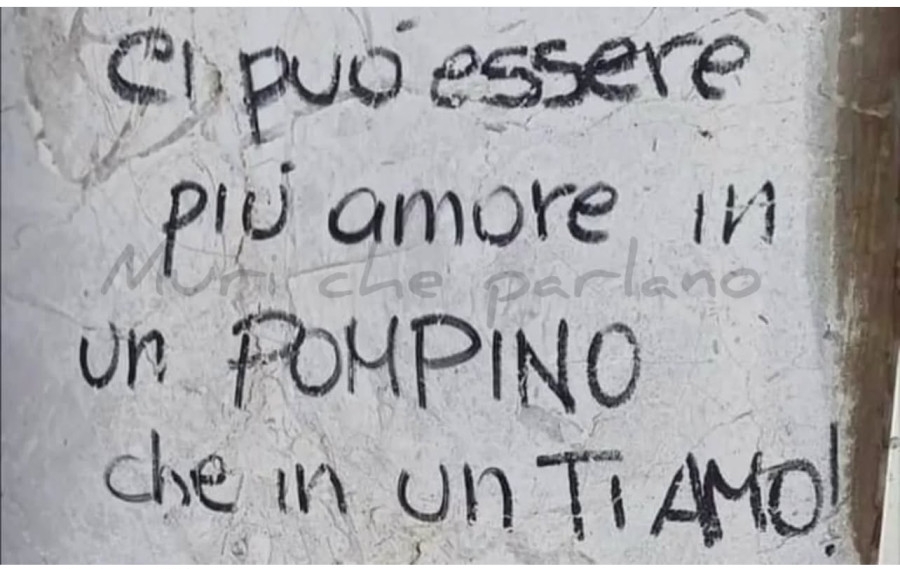 Ci può essere
più amore in
Muri che parlano
un POMPINO
che in un TI AMO!